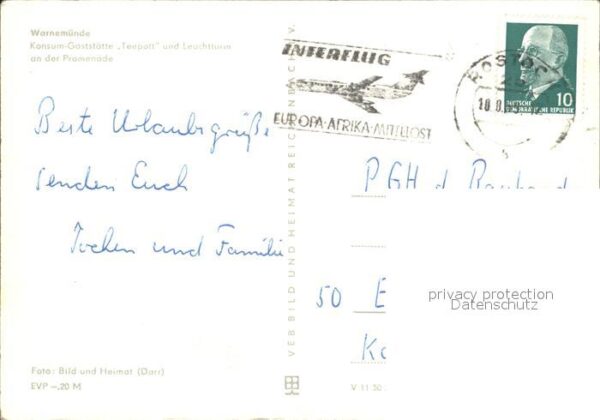 Warnemünde
Konsum-Gaststätte „Teepott" und Leuchtturm
an der Promenade
INTERFLUG
EUROPA·AFRIKA·MITTLOST
ROSTOC
DEUTSCHE
DEMOKRATISCHE REPUBLIK
10
Beste Urlaubsgrüße
senden Euch
Jochen und Familie
VEB BILD UND HEIMAT REICHENBACH V.
PGH d.
50 E
privacy protection
Datenschutz
Foto: Bild und Heimat (Darr)
EVP –,20 M
V 11 50